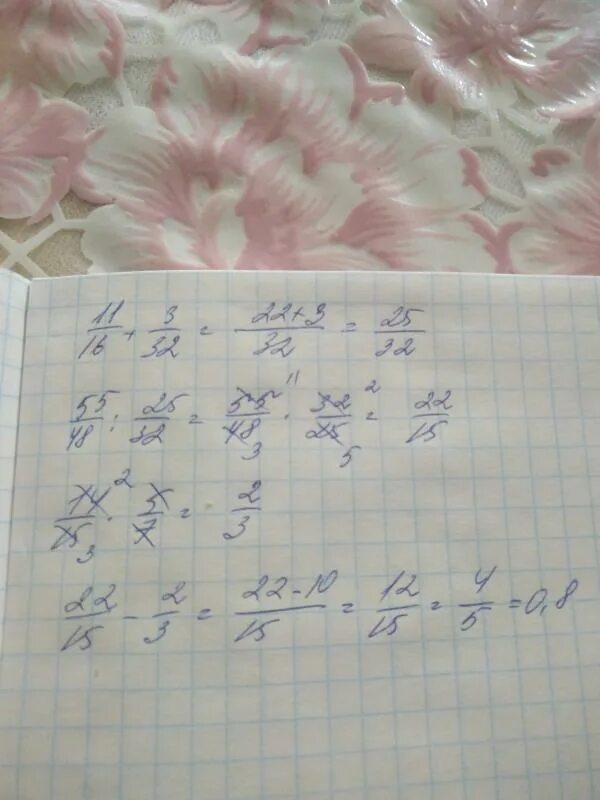 11/16 + 3/32 = 22+3/32 = 25/32
55/48 : 25/32 = 55/48 11 3 · 32/25 2 5 = 22/15
14/15 2 3 · 5/7 = 2/3
22/15 - 2/3 = 22-10/15 = 12/15 = 4/5 = 0,8